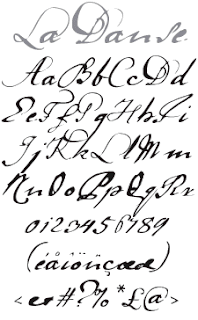 La Danse
AaBbCcDd
EeFfGgHhIi
JjKkLlMm
NnOoPpQqRr
0123456789
(éåîöñçœæ)
<er#?%*£@>